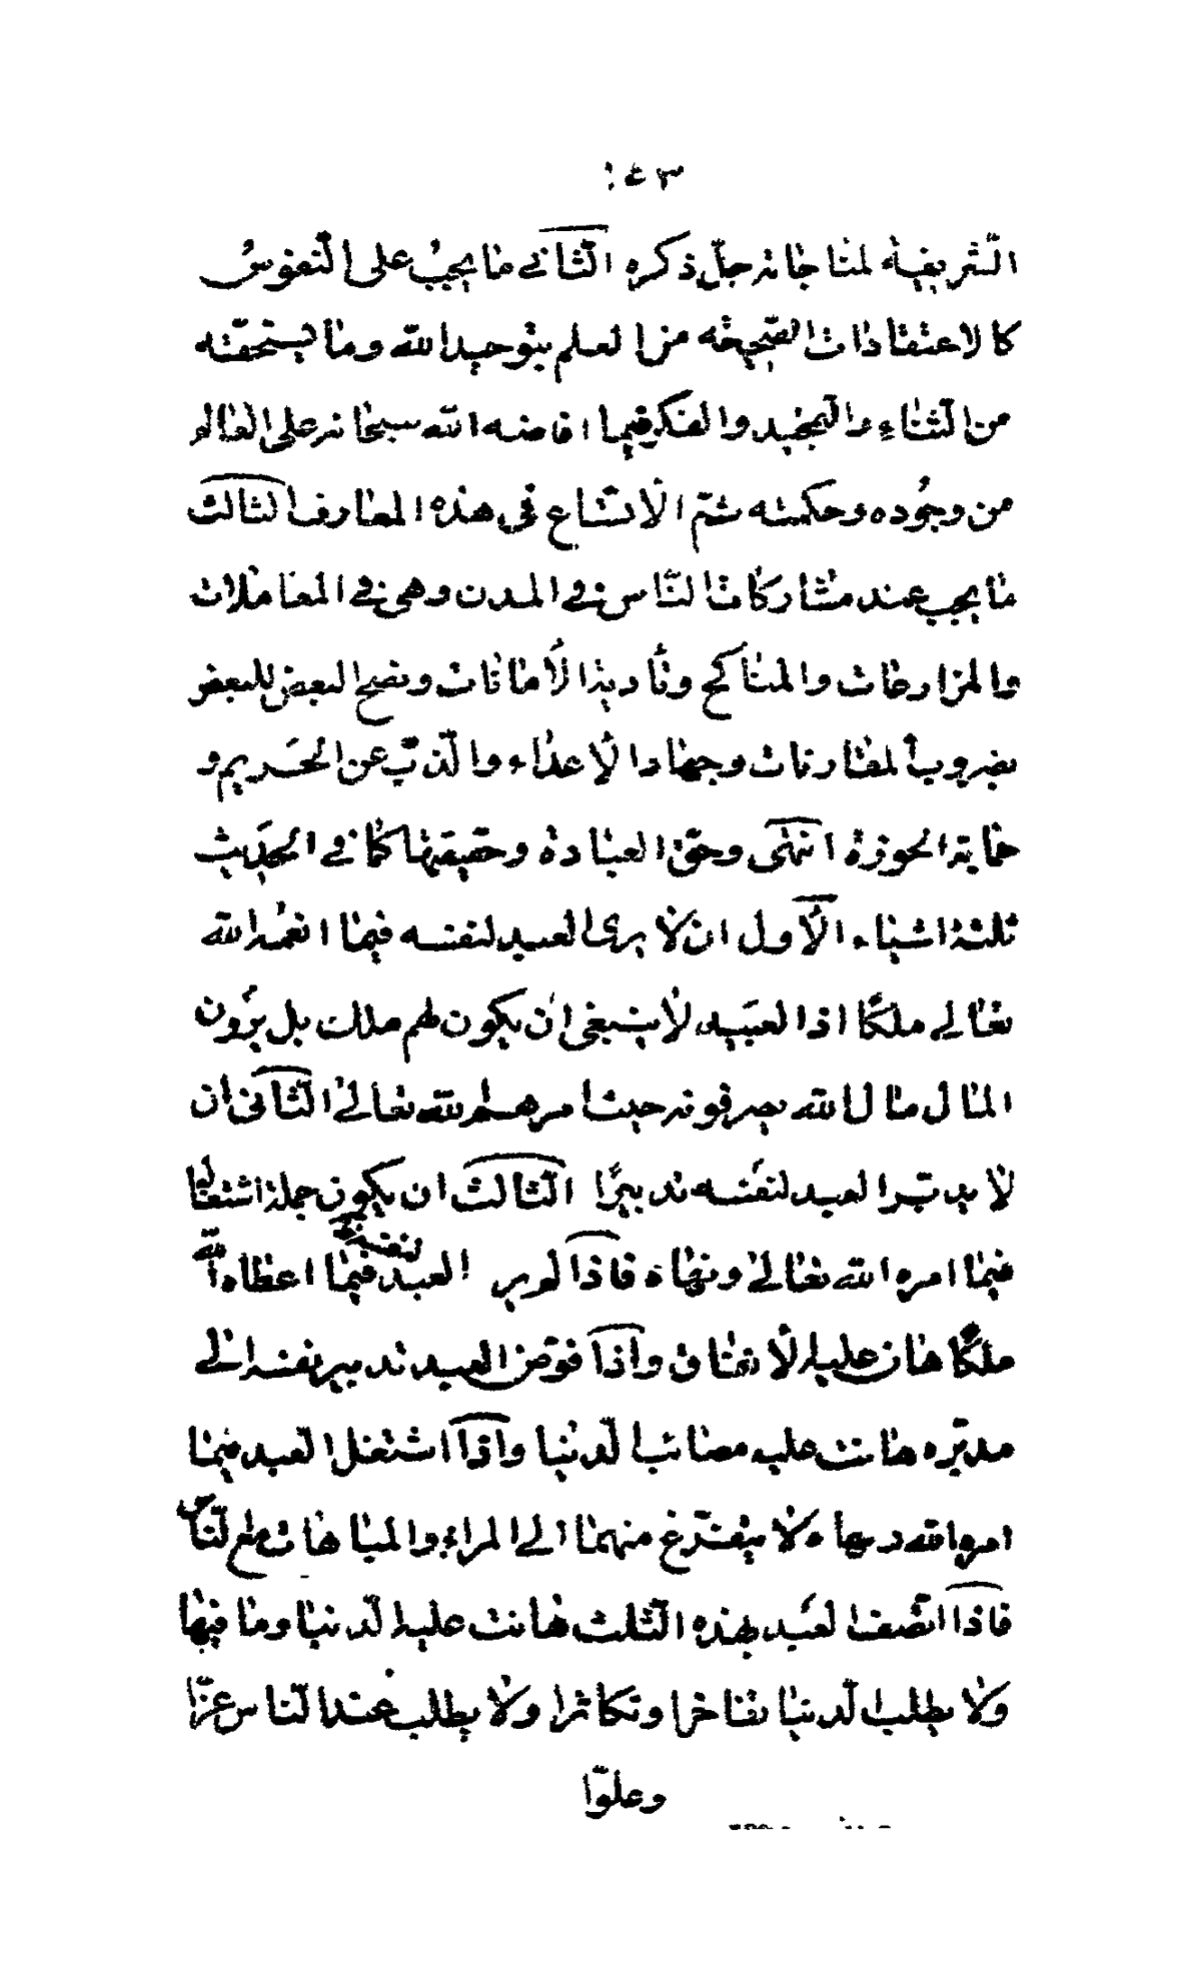 ١٤٣
الشّريفة لمناجاته جلّ ذكره الثّاني ما يجب على النّفوس
كالاعتقادات الصّحيحة من العلم بتوحيد الله وما يستحقّه
من الثّناء والتّمجيد والفكر فيما افاضه الله سبحانه على العالم
من وجوده وحكمته ثمّ الاتّساع في هذه المعارف الثالث
ما يجب عند مشاركات النّاس في المدن وهي في المعاملات
والمزارعات والمناكح وتأدية الأمانات ونصح البعض للبعض
بضروب المعاونات وجهاد الأعداء والذّبّ عن الحريم و
حماية الحوزة انتهى وحقّ العبادة وحقيقتها كما في الحديث
ثلثة اشياء الأول ان لا يرى العبد لنفسه فيما انعمه الله
تعالى ملكًا اذ العبيد لا ينبغي ان يكون لهم ملك بل يرون
المال مال الله يصرفونه حيث امرهم الله تعالى الثّاني ان
لا يدبّر العبد لنفسه تدبيرًا الثّالث ان يكون جملة اشتغاله
فيما امره الله تعالى ونهاه فاذا لم ير العبد لنفسه فيما اعطاه الله
ملكًا هان عليه الانفاق واذا فوّض العبد تدبير نفسه الى
مدبّره هانت عليه مصائب الدّنيا واذا اشتغل العبد فيما
امره الله ونهاه لا يتفرّغ منهما الى المراء والمباهات مع النّاس
فاذا اتّصف العبد بهذه الثّلث هانت عليه الدّنيا وما فيها
ولا يطلب الدّنيا تفاخرا وتكاثرا ولا يطلب عند النّاس عزّا
وعلوّا